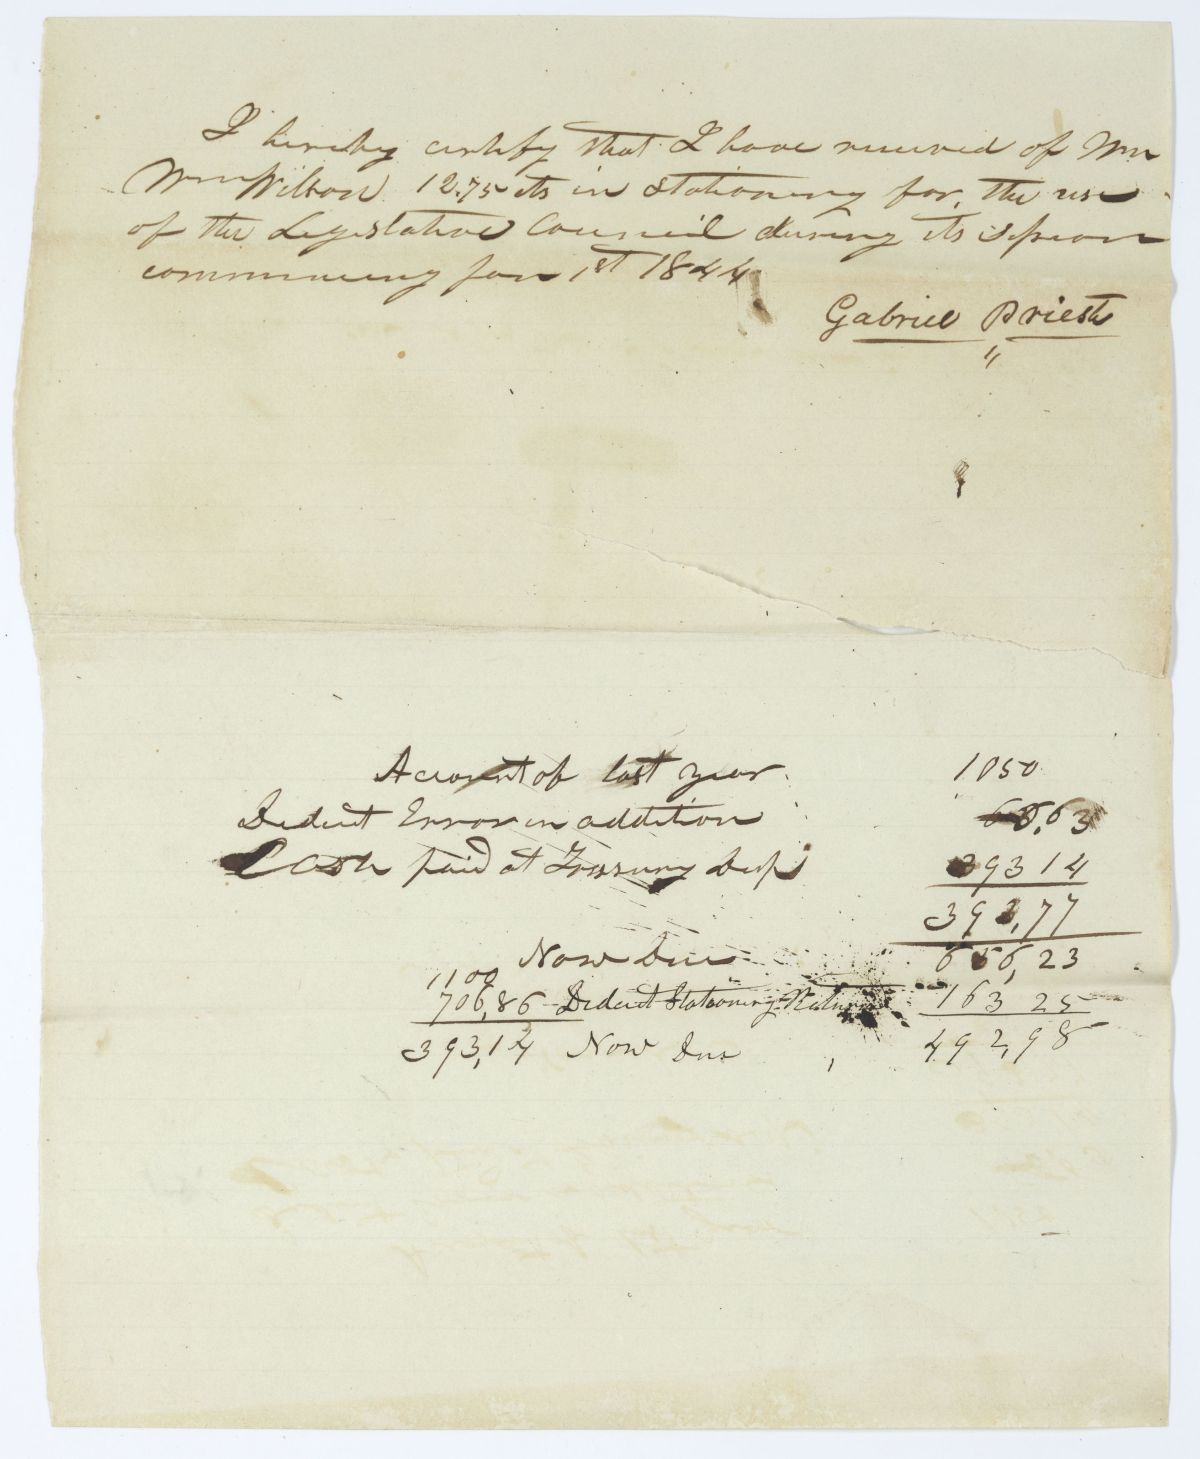 I hereby certify that I have received of Wm
Wm Wilson 12.75 cts in Stationery for, the use
of the Legislative Council during its session
commencing Jan 1st 1844
Gabriel Priest
"
Account of last year 1050
Deduct Error in addition 6,63
Cash paid at Treasury Dep 39314
39 ,77
Now Due 656,23
1100
706,86 Deduct Stationery 163 25
393,14 Now Due , 492,98